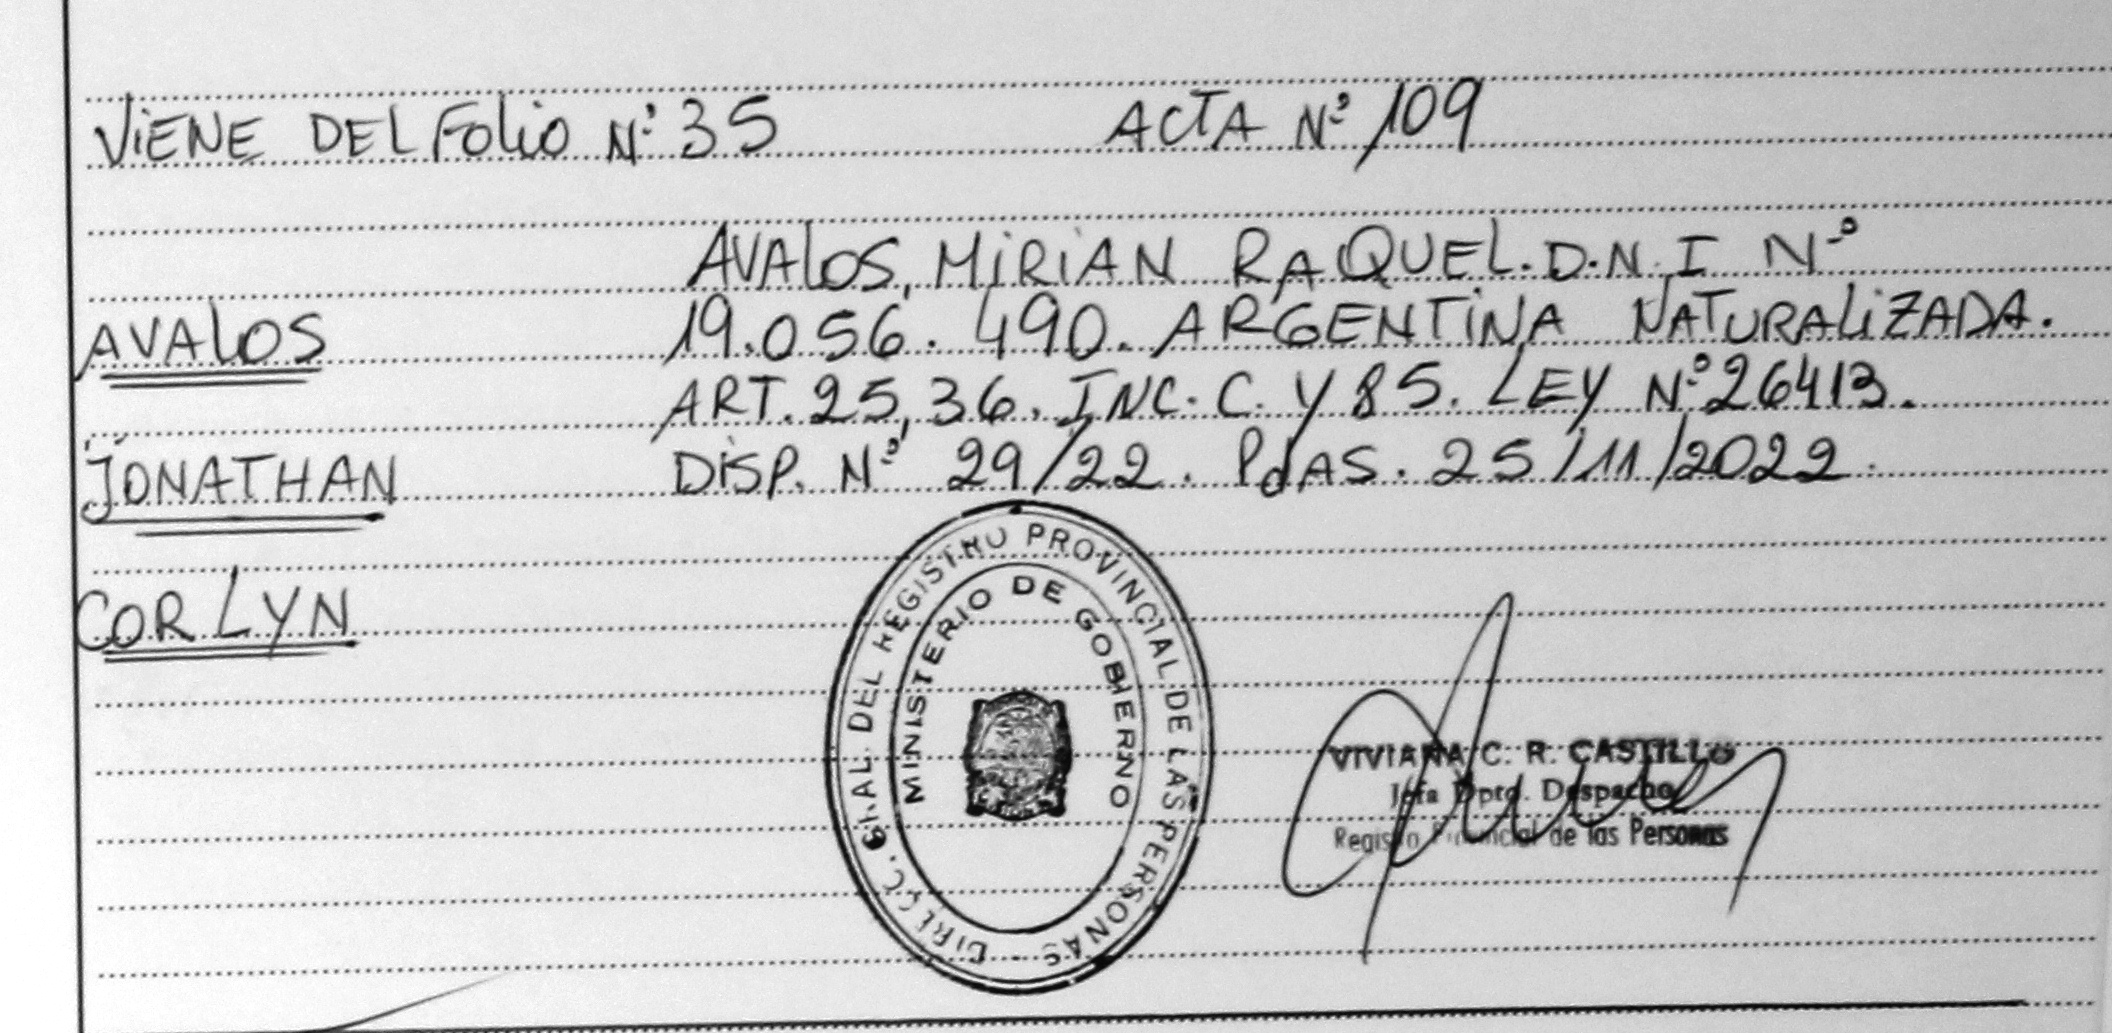 VIENE DEL FOLIO Nº 35 ACTA Nº 109
AVALOS, MIRIAN RAQUEL. D.N.I Nº
AVALOS 19.056.490. ARGENTINA NATURALIZADA.
ART. 25, 36. INC. C. Y 85. LEY Nº 26413.
JONATHAN DISP. Nº 29/22. PdAS. 25/11/2022.
CORLYN
DIREC. GRAL. DEL REGISTRO PROVINCIAL DE LAS PERSONAS
MINISTERIO DE GOBIERNO
VIVIANA C. R. CASTILLO
Jefa Dpto. Despacho
Registro Provincial de las Personas